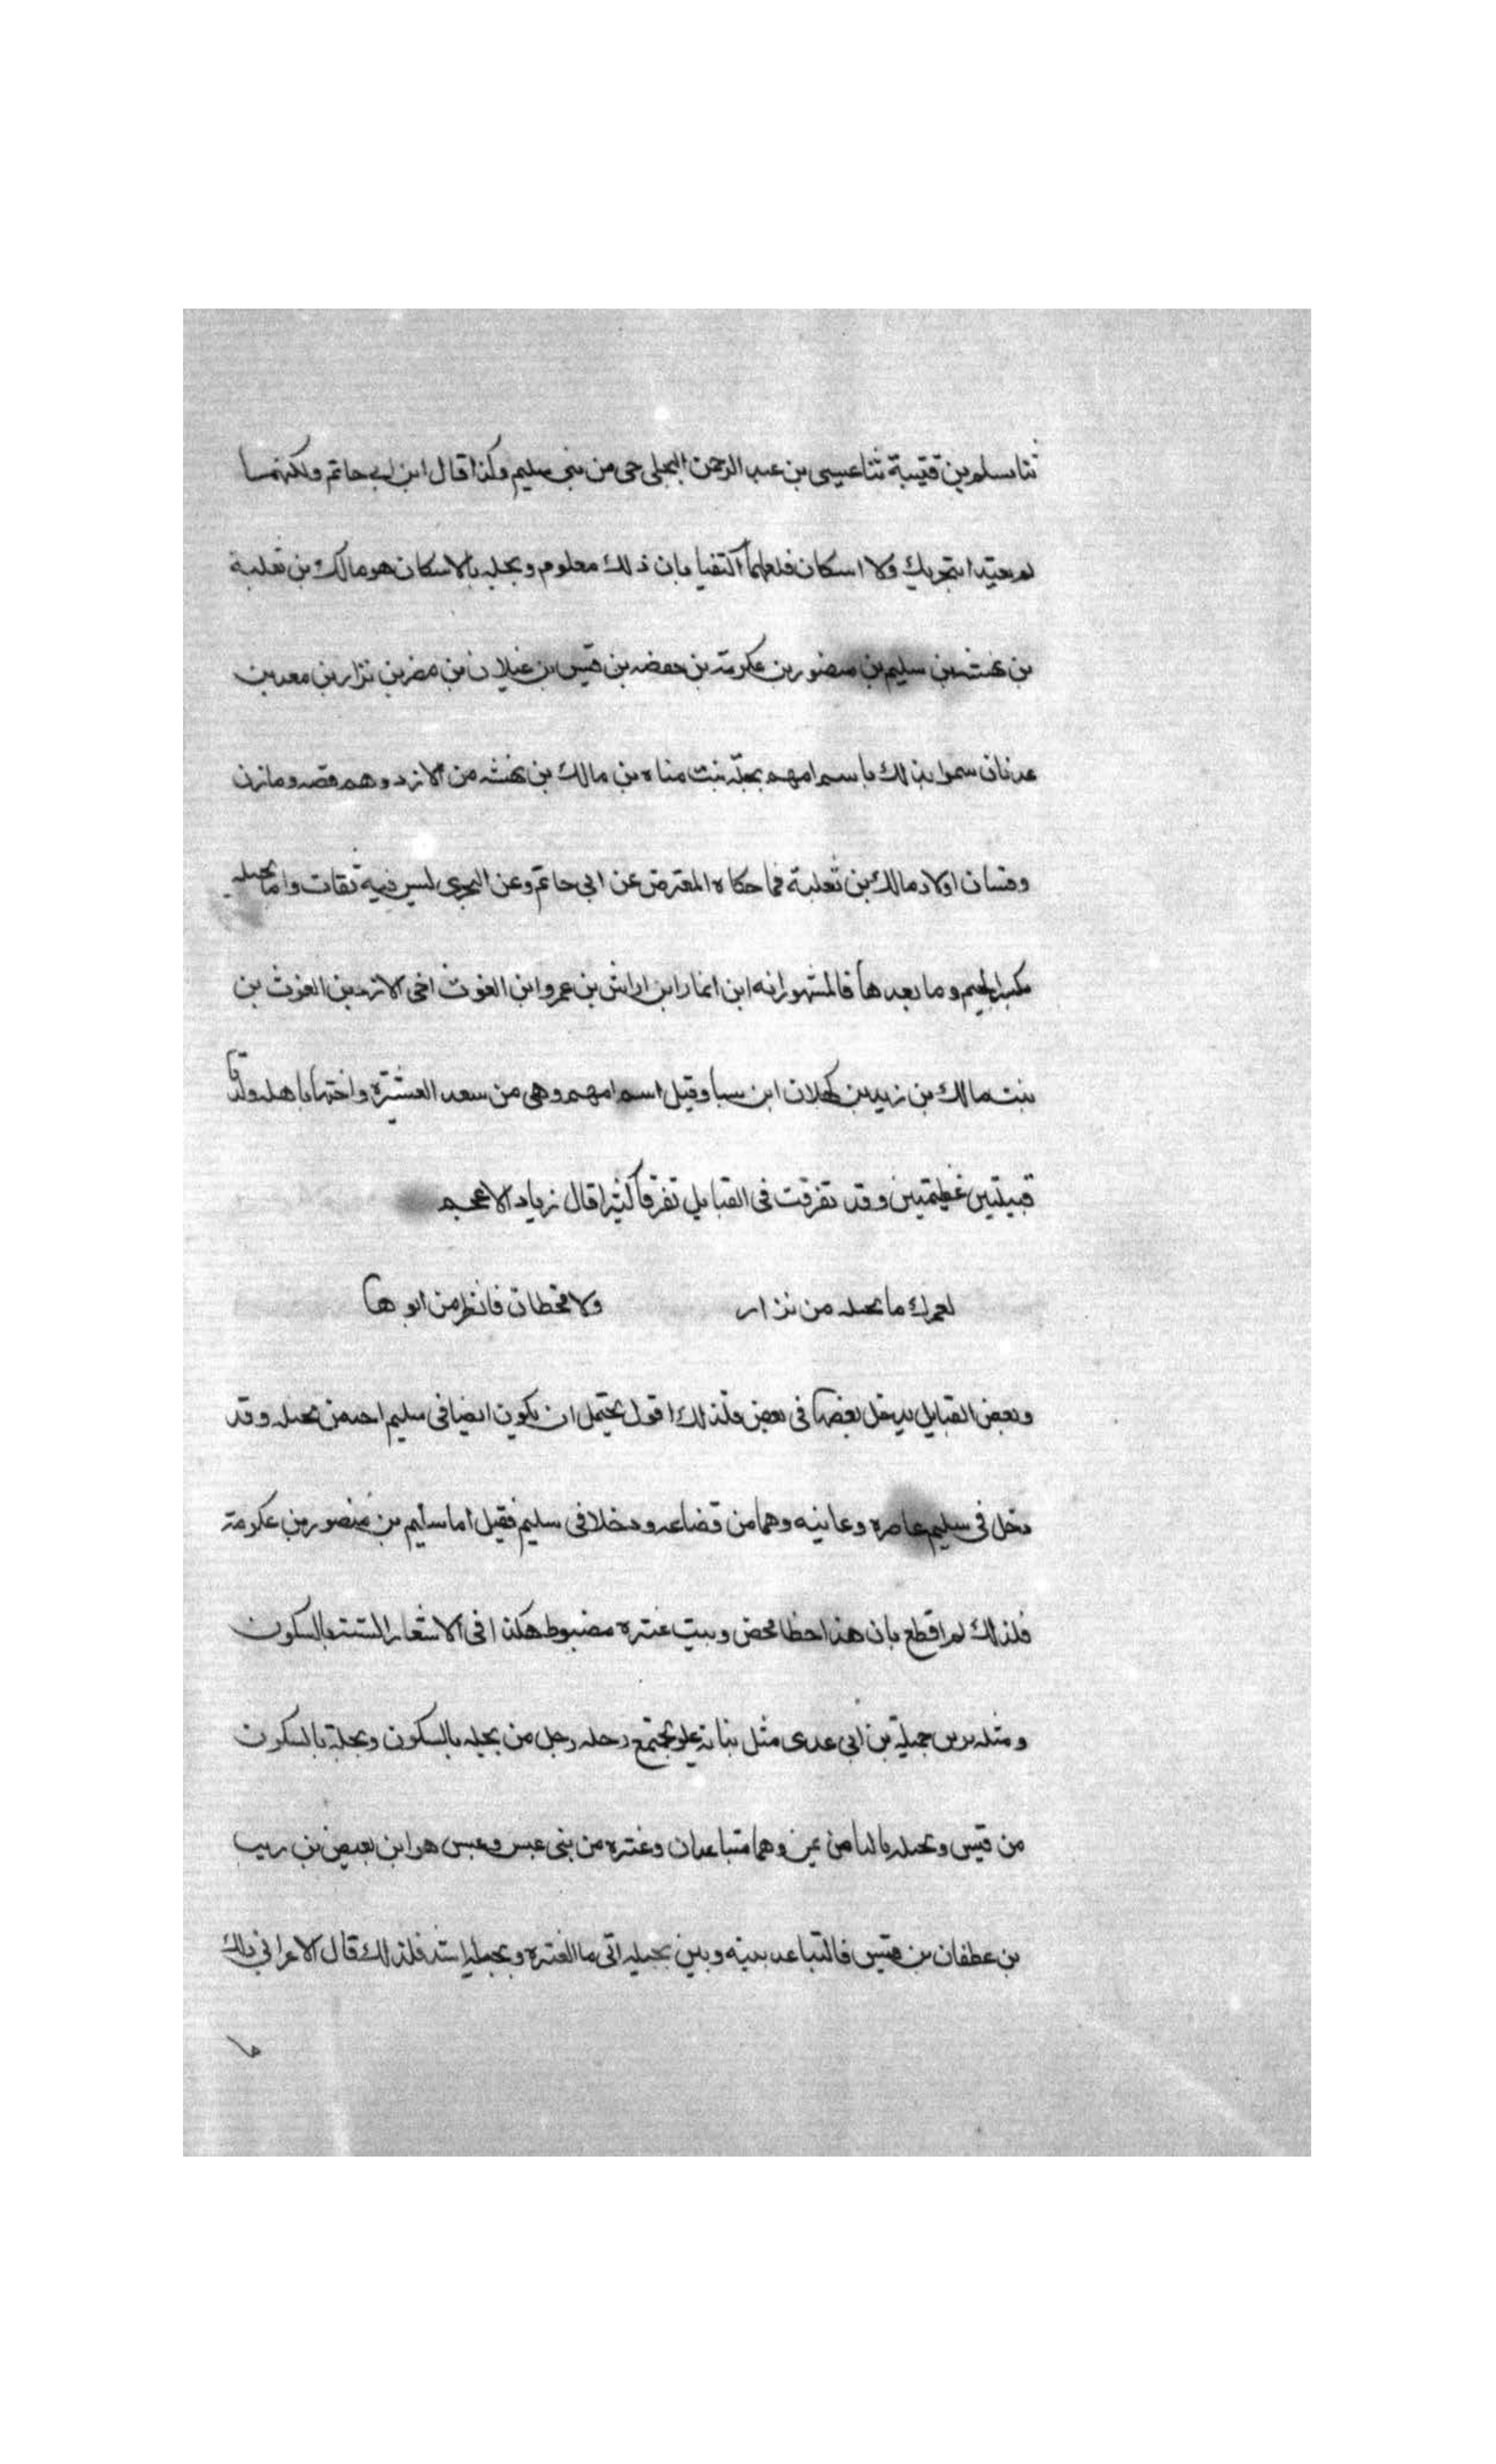 ثنا سلم بن قتيبة ثنا عيسى بن عبد الرحمن البجلى حى من بنى سليم وكذا قال ابن ابى حاتم ولكنهما
لم يقيدا بتحريك ولا اسكان فلعلهما اكتفيا بان ذلك معلوم وبجله بالاسكان هو مالك بن ثعلبة
بن بهثه بن سليم بن منصور بن عكرمة بن حفصه بن قيس بن غيلان بن مضر بن نزار بن معد بن
عدنان سموا بذلك باسم امهم بجلة بنت مناه بن مالك بن بهثه من الازد وهم قصه ومازن
وفسان اولاد مالك بن ثعلبة فما حكاه المعترض عن ابى حاتم وعن ليس فيه ثقات واما بجيله
بكسر الجيم وما بعدها فالمشهور انه ابن انمار ابن اراش بن عمرو ابن الغوث اخى الازد بن الغوث بن
بنت مالك بن زيد بن كهلان ابن سبا وقيل اسم امهم وهى من سعد العشيرة واختها باهله ولدتا
قبيلتين عظيمتين وقد تفرقت فى القبايل تفرقا كثيرا قال زياد الاعجم
لعمرك ما بجيله من نزار ولا قحطان فانظر من ابوها
وبعض القبايل يدخل بعضها فى بعض فلذلك اقول يحتمل ان يكون ايضا فى سليم احد من بجيله وقد
دخل فى سليم عاصره وعانيه وهما من قضاعه ودخلا فى سليم فقيل اما سليم بن منصور بن عكرمة
فلذلك لم اقطع بان هذا خطا محض وبيت عنتره مضبوط هكذا فى الاشعار الستة بالسكون
ومثله بن جميلة بن أبى عدى مثل رحله رجل من بجله بالسكون وبجلة بالسكون
من قيس وبجيله باليا من يمن وهما متباعدان وعنتره من بنى عبس وعبس هو ابن بغيض بن ريب
بن عطفان بن قيس فالتباعد بينه وبين بجيله اتى ما لعنتره وبجيلة اشد فلذلك قال الاعرابى ذلك